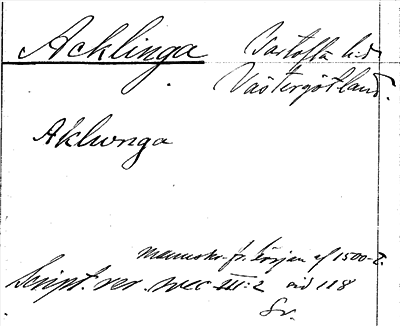 Acklinga Vartofta hd
Västergötland.
Aklwnga
manuskr. fr. början af 1500-t.
Script. rer. svec III:2 sid 118
Gr.